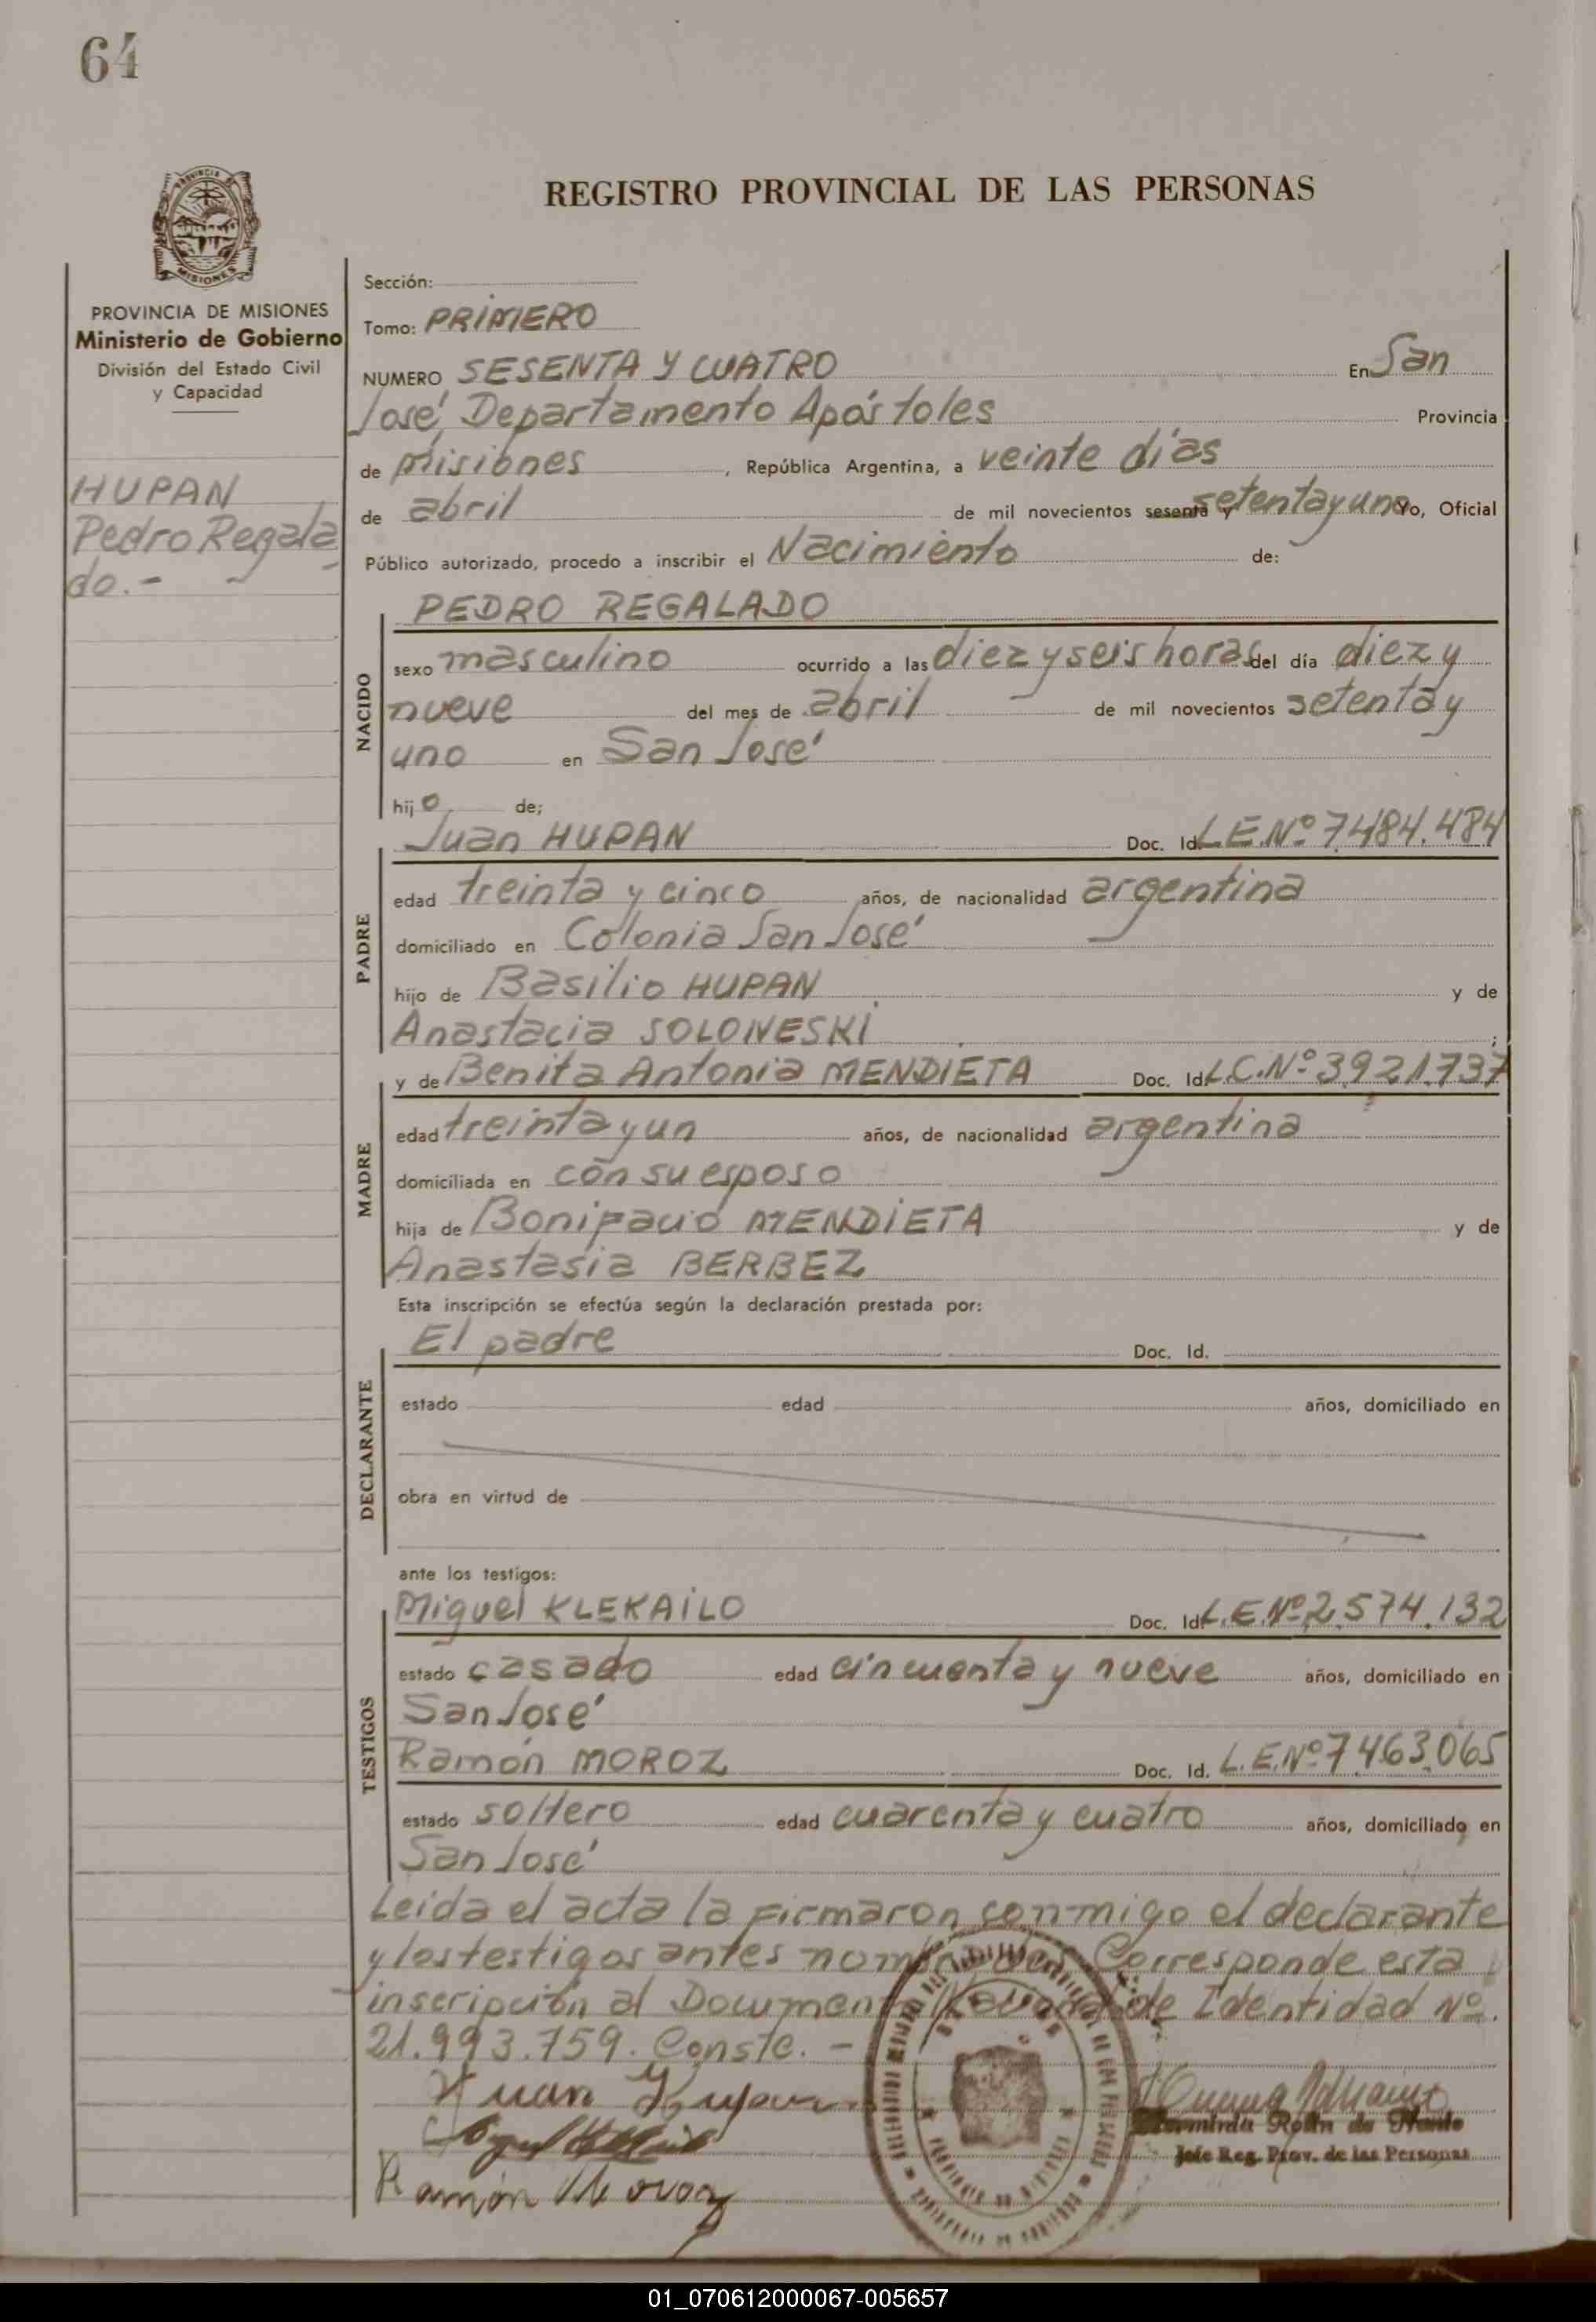 64
PROVINCIA DE
MISIONES
REGISTRO PROVINCIAL DE LAS PERSONAS
PROVINCIA DE MISIONES
Ministerio de Gobierno
División del Estado Civil
y Capacidad
HUPAN
Pedro Regala
do.-
Sección:
Tomo: PRIMERO
NUMERO SESENTA Y CUATRO En San
José, Departamento Apóstoles Provincia
de Misiones, República Argentina, a veinte días
de abril de mil novecientos sesenta y setenta y uno Yo, Oficial
Público autorizado, procedo a inscribir el Nacimiento de:
PEDRO REGALADO
NACIDO
sexo masculino ocurrido a las diez y seis horas del día diez y
nueve del mes de abril de mil novecientos setenta y
uno en San José
hijo de;
Juan HUPAN Doc. Id. L.E.Nº 7.484.484
PADRE
edad treinta y cinco años, de nacionalidad argentina
domiciliado en Colonia San José
hijo de Basilio HUPAN y de
Anastacia SOLONESKI ;
y de Benita Antonia MENDIETA Doc. Id. L.C.Nº 3.921.737
MADRE
edad treinta y un años, de nacionalidad argentina
domiciliada en con su esposo
hija de Bonifacio MENDIETA y de
Anastasia BERBEZ
Esta inscripción se efectúa según la declaración prestada por:
El padre Doc. Id.
DECLARANTE
estado edad años, domiciliado en
obra en virtud de
ante los testigos:
Miguel KLEKAILO Doc. Id. L.E.Nº 2.574.132
TESTIGOS
estado casado edad cincuenta y nueve años, domiciliado en
San José
Ramón MOROZ Doc. Id. L.E.Nº 7.463.065
estado soltero edad cuarenta y cuatro años, domiciliado en
San José
Leida el acta la firmaron conmigo el declarante
y los testigos antes nombrados. Corresponde esta
inscripción al Documento Nacional de Identidad Nº.
21.993.759. Conste. -
Juan Hupan
Ramón Moroz
Jefe Reg. Prov. de las Personas
01_070612000067-005657